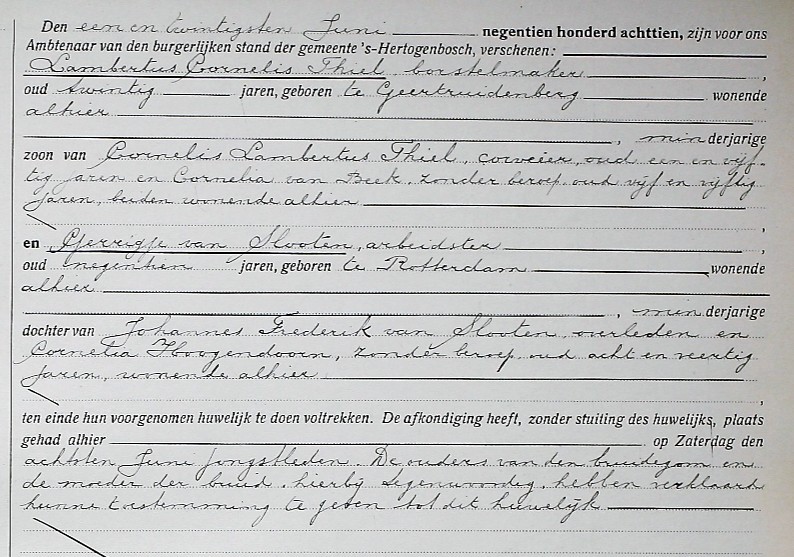 Den een en twintigsten Juni negentien honderd achttien, zijn voor ons
Ambtenaar van den burgerlijken stand der gemeente 's-Hertogenbosch, verschenen:
Lambertus Cornelis Thiel, borstelmaker,
oud twintig jaren, geboren te Geertruidenberg wonende
alhier
, minderjarige
zoon van Cornelis Lambertus Thiel, corveier, oud een en vijf-
tig jaren en Cornelia van Beek, zonder beroep, oud vijf en vijftig
jaren, beiden wonende alhier
,
en Gerrigje van Slooten, arbeidster,
oud negentien jaren, geboren te Rotterdam wonende
alhier
, minderjarige
dochter van Johannes Frederik van Slooten, overleden en
Cornelia Hoogendoorn, zonder beroep, oud acht en veertig
jaren, wonende alhier
,
ten einde hun voorgenomen huwelijk te doen voltrekken. De afkondiging heeft, zonder stuiting des huwelijks, plaats
gehad alhier op Zaterdag den
achtsten Juni jongstleden. De ouders van den bruidegom en
de moeder der bruid, hierbij tegenwoordig, hebben verklaard
hunne toestemming te geven tot dit huwelijk